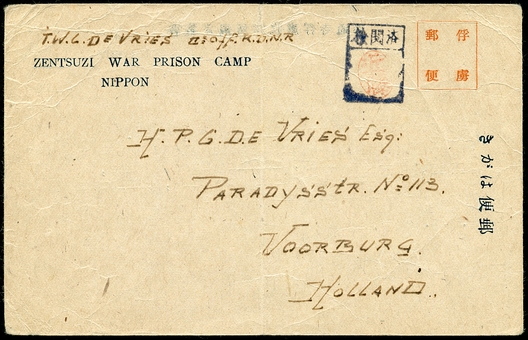 T.W.L. DE VRIES
ZENTSUZI WAR PRISON CAMP
NIPPON
検閲済
俘虜
郵便
H. P. G. DE VRIES Esq:
PARADYSSTR. No 113.
VOORBURG.
HOLLAND.
郵便はがき